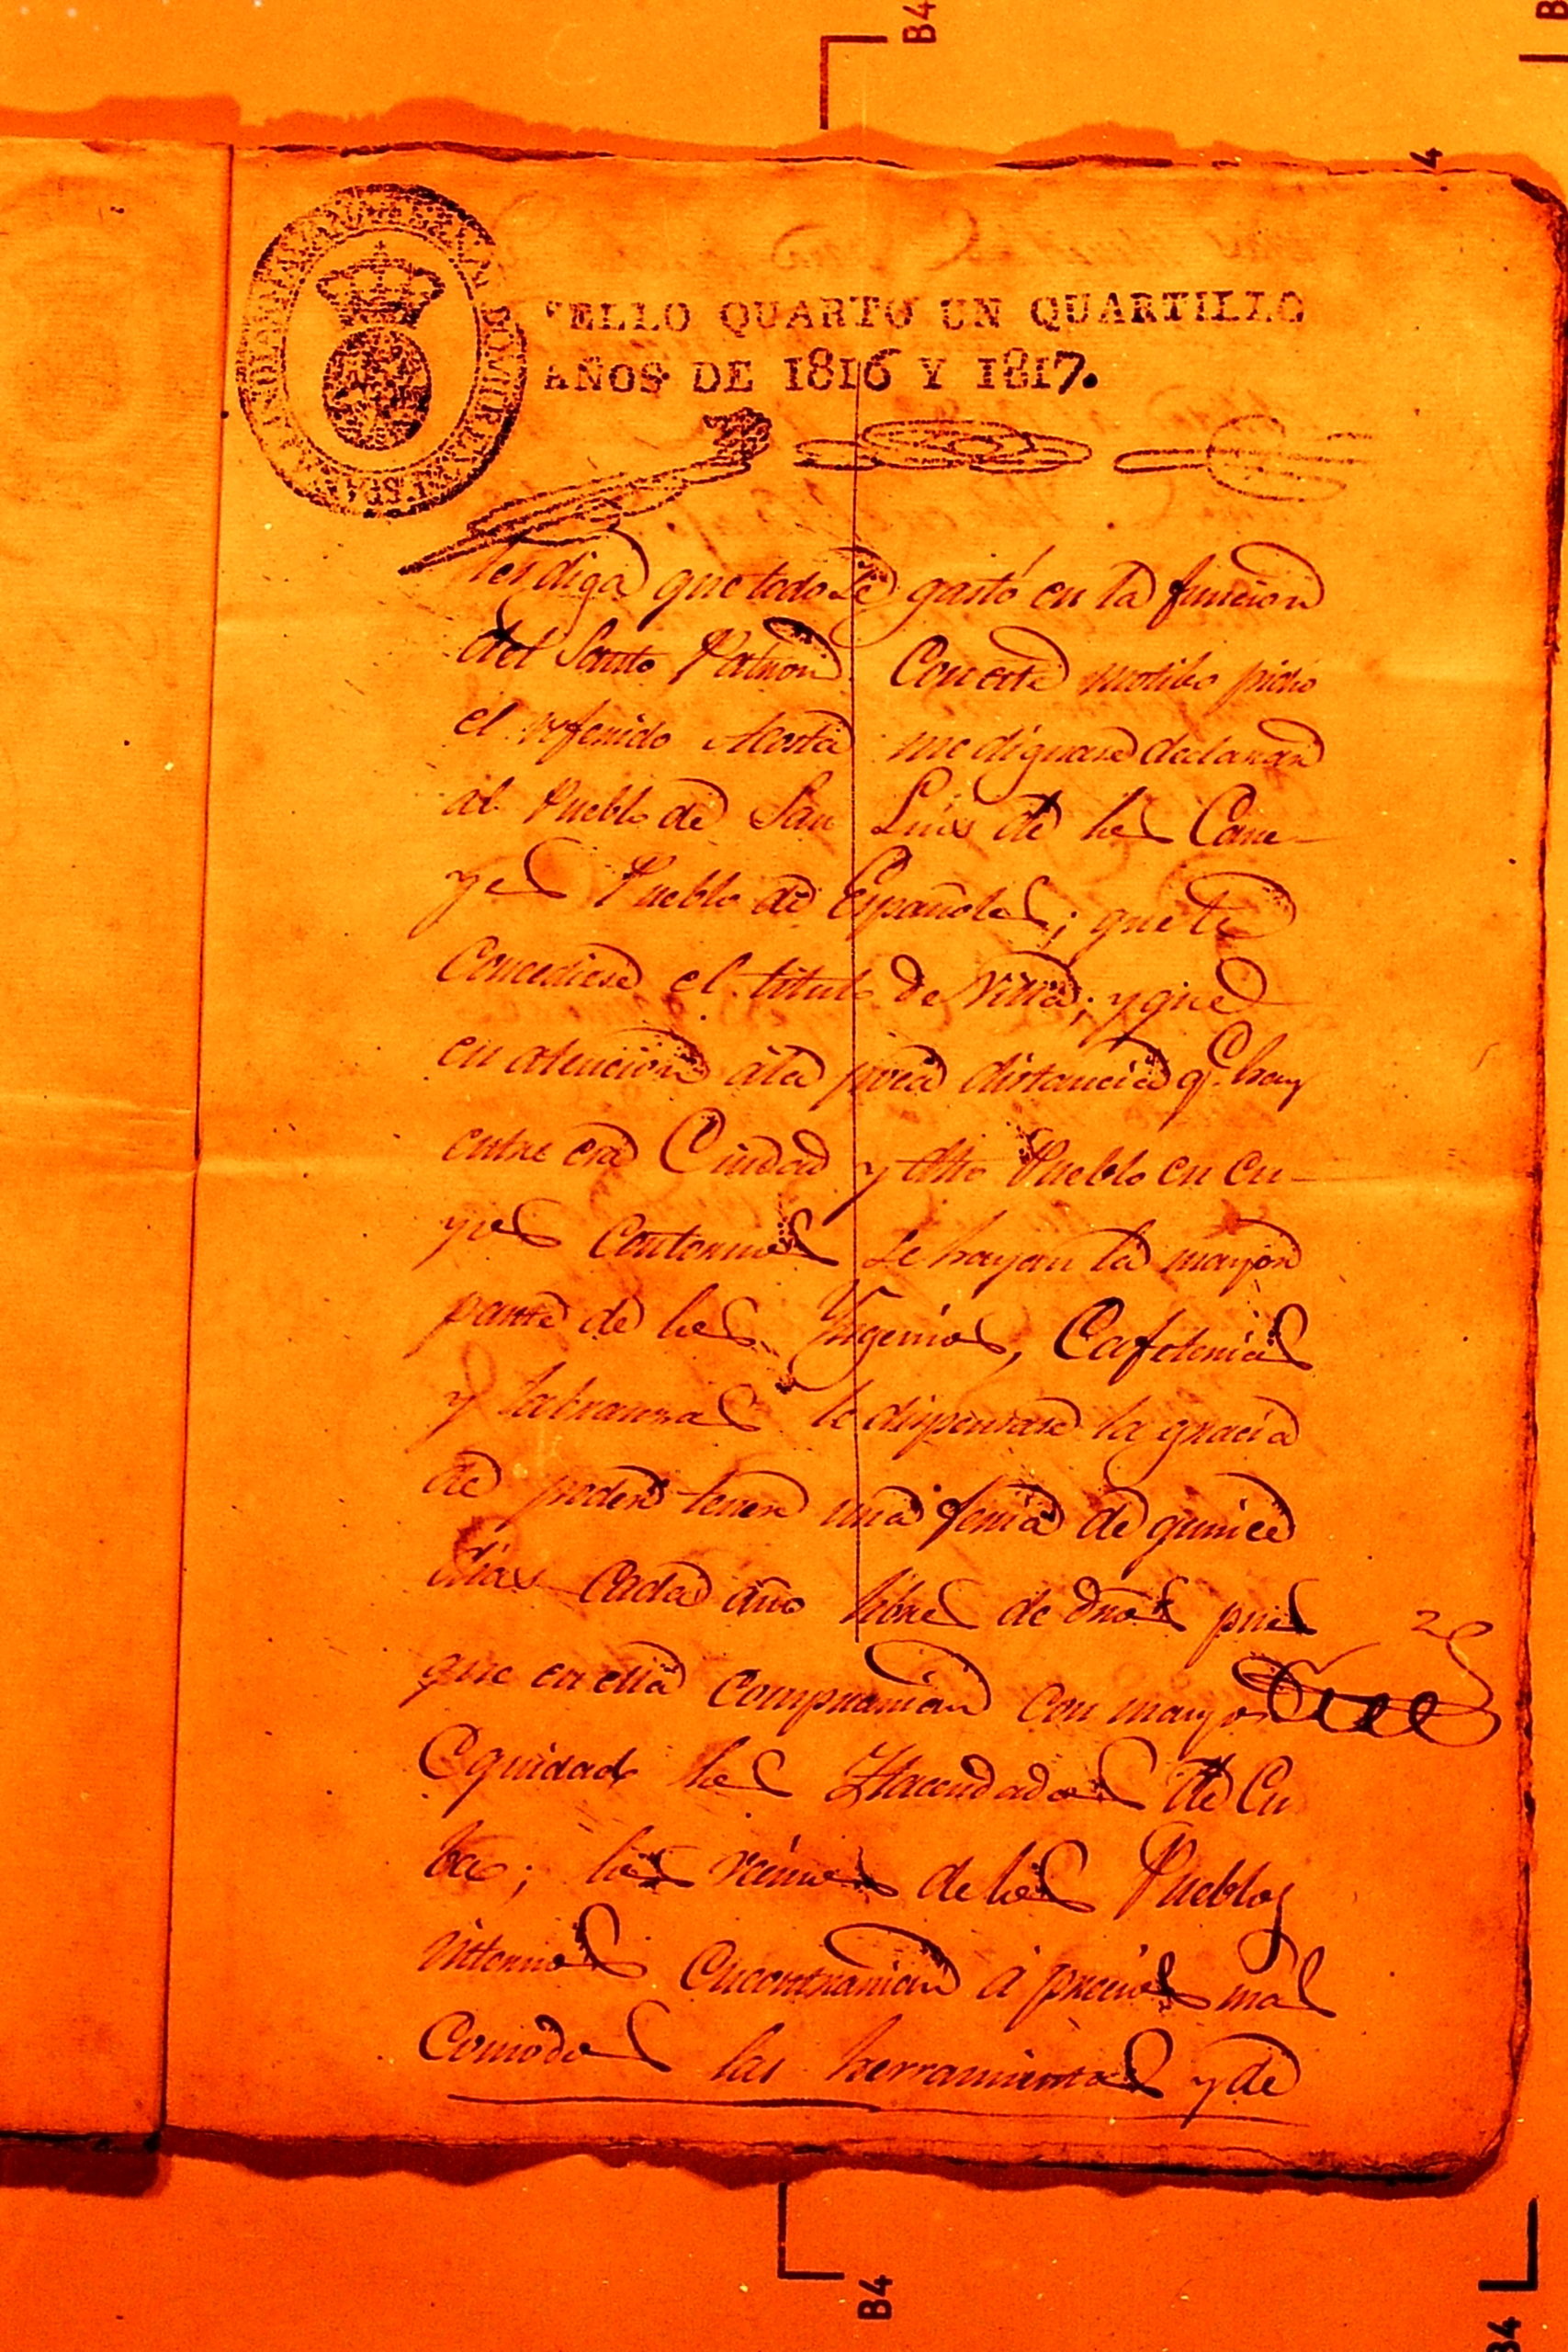 SELLO QUARTO UN QUARTILLO
AÑOS DE 1816 Y 1817.
les diga que todo se gastó en la funcion
del Santo Patron. Con este motibo pidio
el referido Acosta me dignase declarar
al Pueblo de San Luis de los Cane-
yes Pueblo de Españoles; que le
concediese el titulo de Villa; y que
en atencion á la poca distancia q.e hay
entre esa Ciudad y dho Pueblo en cu-
yos contornos se hayan la mayor
parte de los Yngenios, Cafeterias
y labranzas le dispensase la gracia
de poder tener una feria de quince
dias cada año libre de dros pues
que en ella comprarian con mayor
Equidad los Hacendados de Cu
ba; los vecinos de los Pueblos
internos encontrarian á precios mas
comodos las herramientas y de
B4
B4